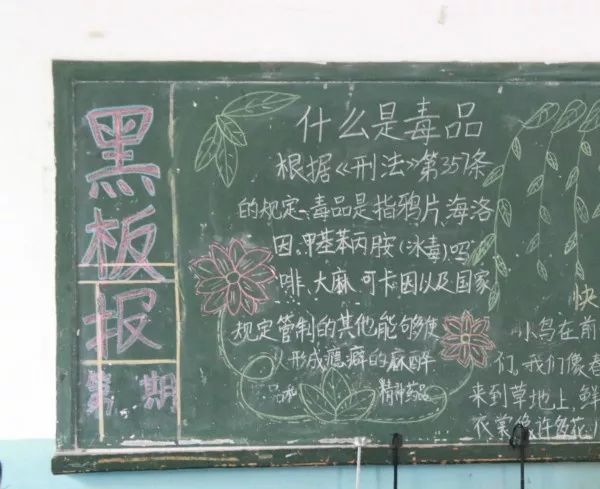 黑板报
第 期
什么是毒品
根据《刑法》第357条
的规定、毒品是指鸦片、海洛
因、甲基苯丙胺(冰毒)吗
啡、大麻、可卡因以及国家
规定管制的其他能够使
人形成瘾癖的麻醉
品和 精神药品
快
小鸟在前
们,我们像春
来到草地上,鲜
衣裳像许多花儿